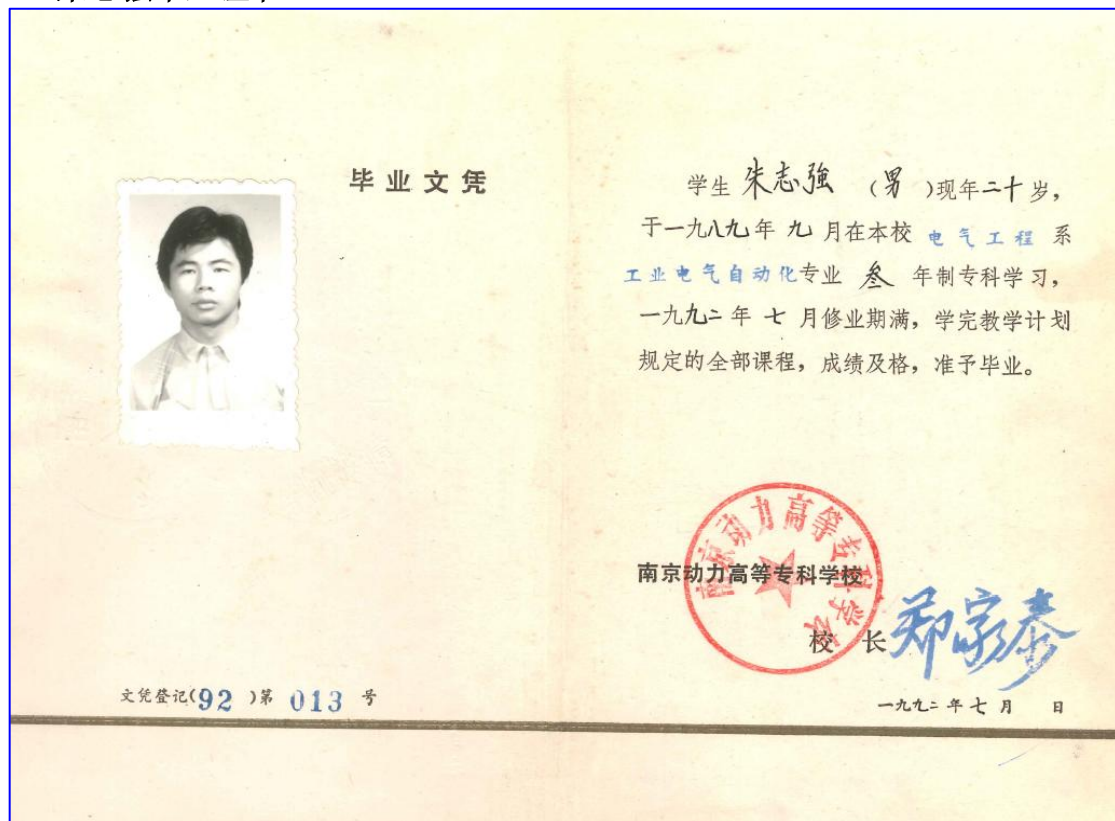 毕业文凭
学生 朱志強 （男）现年二十岁，
于一九八九年 九 月在本校 电气工程 系
工业电气自动化专业 叁 年制专科学习，
一九九二年 七 月修业期满，学完教学计划
规定的全部课程，成绩及格，准予毕业。
南京动力高等专科学校
南京动力高等专科学校
校 长 郑家泰
一九九二年七月 日
文凭登记(92)第 013 号